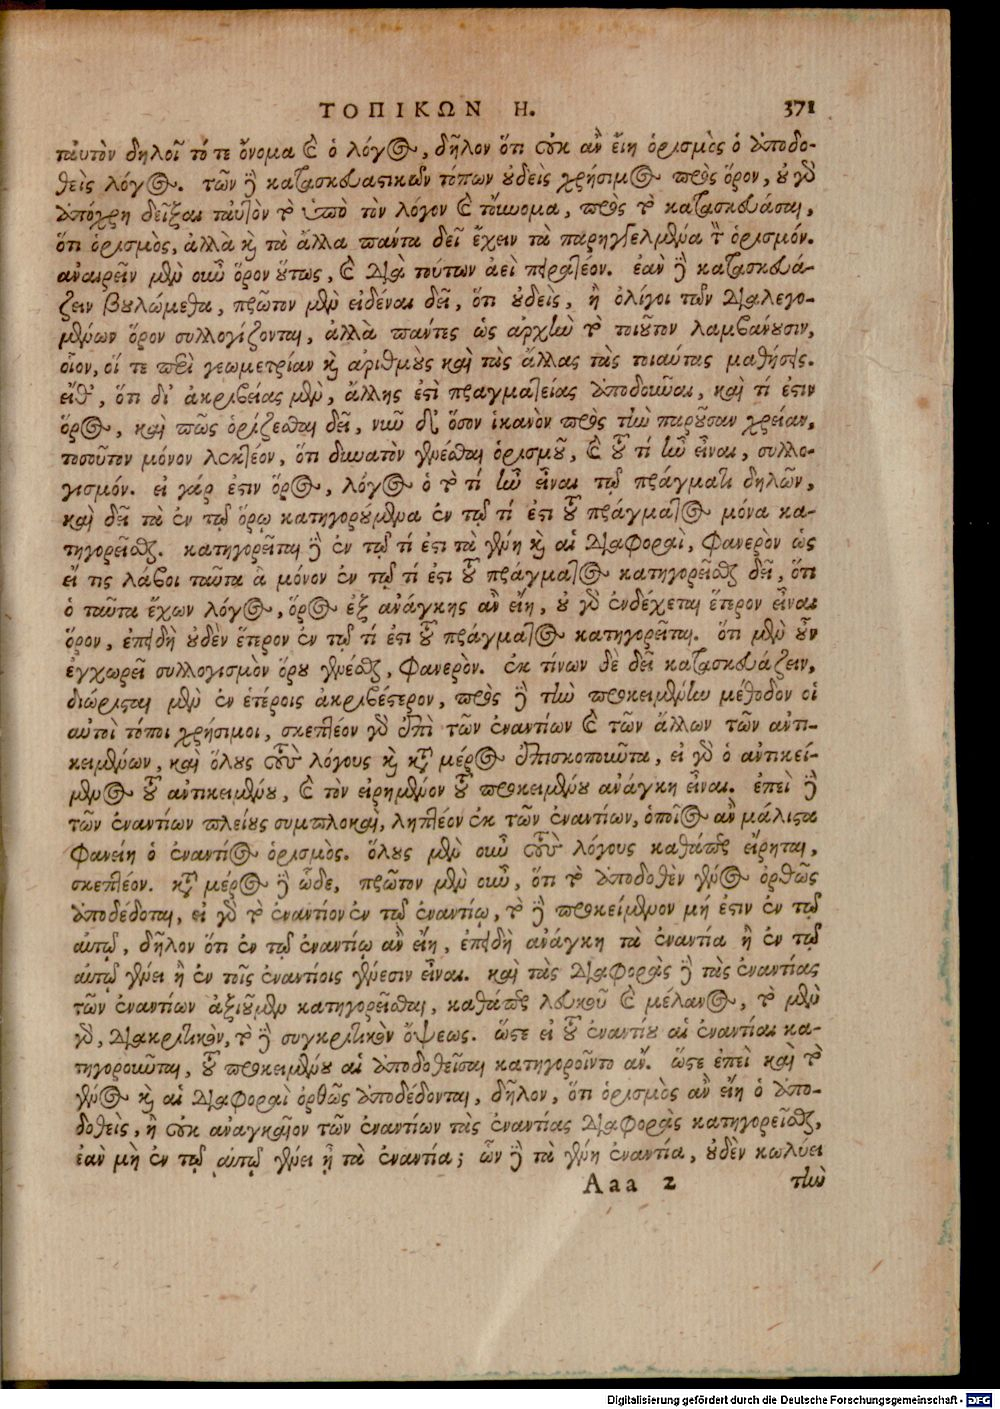 ΤΟΠΙΚΩΝ Η. 371
ταὐτὸν δηλοῖ τό τε ὄνομα καὶ ὁ λόγος, δῆλον ὅτι οὐκ ἂν εἴη ὁρισμὸς ὁ ἀποδο-
θεὶς λόγος. τῶν δὲ κατασκευαστικῶν τόπων οὐδεὶς χρήσιμος πρὸς ὅρον, οὐ γὰρ
ἀπόχρη δεῖξαι ταὐτὸν τὸ ὑπὸ τὸν λόγον καὶ τοὔνομα, πρὸς τὸ κατασκευάσαι,
ὅτι ὁρισμὸς, ἀλλὰ καὶ τὰ ἄλλα πάντα δεῖ ἔχειν τὰ παρηγγελμένα τὸν ὁρισμόν.
ἀναιρεῖν μὲν οὖν ὅρον οὕτως, καὶ διὰ τούτων ἀεὶ πειρατέον. ἐὰν δὲ κατασκευά-
ζειν βουλώμεθα, πρῶτον μὲν εἰδέναι δεῖ, ὅτι οὐδεὶς, ἢ ὀλίγοι τῶν διαλεγο-
μένων ὅρον συλλογίζονται, ἀλλὰ πάντες ὡς ἀρχὴν τὸ τοιοῦτον λαμβάνουσιν,
οἷον, οἵ τε περὶ γεωμετρίαν καὶ ἀριθμοὺς καὶ τὰς ἄλλας τὰς τοιαύτας μαθήσεις.
εἶθ᾽, ὅτι δι᾽ ἀκριβείας μὲν, ἄλλης ἐστὶ πραγματείας ἀποδοῦναι, καὶ τί ἐστιν
ὅρος, καὶ πῶς ὁρίζεσθαι δεῖ, νῦν δὲ ὅσον ἱκανὸν πρὸς τὴν παροῦσαν χρείαν,
τοσοῦτον μόνον λεκτέον, ὅτι δυνατὸν γενέσθαι ὁρισμοῦ, καὶ τοῦ τί ἦν εἶναι, συλλο-
γισμόν. εἰ γάρ ἐστιν ὅρος, λόγος ὁ τὸ τί ἦν εἶναι τῷ πράγματι δηλῶν,
καὶ δεῖ τὰ ἐν τῷ ὅρῳ κατηγορούμενα ἐν τῷ τί ἐστι τοῦ πράγματος μόνα κα-
τηγορεῖσθαι. κατηγορεῖται δὲ ἐν τῷ τί ἐστι τὰ γένη καὶ αἱ διαφοραὶ, φανερὸν ὡς
εἴ τις λάβοι ταῦτα ἃ μόνον ἐν τῷ τί ἐστι τοῦ πράγματος κατηγορεῖσθαι δεῖ, ὅτι
ὁ ταῦτα ἔχων λόγος, ὅρος ἐξ ἀνάγκης ἂν εἴη, οὐ γὰρ ἐνδέχεται ἕτερον εἶναι
ὅρον, ἐπειδὴ οὐδὲν ἕτερον ἐν τῷ τί ἐστι τοῦ πράγματος κατηγορεῖται. ὅτι μὲν οὖν
ἐγχωρεῖ συλλογισμὸν ὅρου γενέσθαι, φανερὸν. ἐκ τίνων δὲ δεῖ κατασκευάζειν,
διώρισται μὲν ἐν ἑτέροις ἀκριβέστερον, πρὸς δὲ τὴν προκειμένην μέθοδον οἱ
αὐτοὶ τόποι χρήσιμοι, σκεπτέον γὰρ ἐπὶ τῶν ἐναντίων καὶ τῶν ἄλλων τῶν ἀντι-
κειμένων, καὶ ὅλους τοὺς λόγους καὶ κατὰ μέρος ἐπισκοποῦντα, εἰ γὰρ ὁ ἀντικεί-
μενος τοῦ ἀντικειμένου, καὶ τὸν εἰρημένον τοῦ προκειμένου ἀνάγκη εἶναι. ἐπεὶ δὲ
τῶν ἐναντίων πλείους συμπλοκαὶ, ληπτέον ἐκ τῶν ἐναντίων, ὁποῖος ἂν μάλιστα
φανείη ὁ ἐναντίος ὁρισμός. ὅλους μὲν οὖν τοὺς λόγους καθάπερ εἴρηται,
σκεπτέον. κατὰ μέρος δὲ ὧδε, πρῶτον μὲν οὖν, ὅτι τὸ ἀποδοθὲν γένος ὀρθῶς
ἀποδέδοται, εἰ γὰρ τὸ ἐναντίον ἐν τῷ ἐναντίῳ, τὸ δὲ προκείμενον μή ἐστιν ἐν τῷ
αὐτῷ, δῆλον ὅτι ἐν τῷ ἐναντίῳ ἂν εἴη, ἐπειδὴ ἀνάγκη τὰ ἐναντία ἢ ἐν τῷ
αὐτῷ γένει ἢ ἐν τοῖς ἐναντίοις γένεσιν εἶναι. καὶ τὰς διαφορὰς δὲ τὰς ἐναντίας
τῶν ἐναντίων ἀξιοῦμεν κατηγορεῖσθαι, καθάπερ λευκοῦ καὶ μέλανος, τὸ μὲν
γὰρ, διακριτικὸν, τὸ δὲ συγκριτικὸν ὄψεως. ὥστε εἰ τοῦ ἐναντίου αἱ ἐναντίαι κα-
τηγοροῦνται, τοῦ προκειμένου αἱ ἀποδοθεῖσαι κατηγοροῖντο ἄν. ὥστε ἐπεὶ καὶ τὸ
γένος καὶ αἱ διαφοραὶ ὀρθῶς ἀποδέδονται, δῆλον, ὅτι ὁρισμὸς ἂν εἴη ὁ ἀπο-
δοθεὶς, ἢ οὐκ ἀναγκαῖον τῶν ἐναντίων τὰς ἐναντίας διαφορὰς κατηγορεῖσθαι,
ἐὰν μὴ ἐν τῷ αὐτῷ γένει ᾖ τὰ ἐναντία; ὧν δὲ τὰ γένη ἐναντία, οὐδὲν κωλύει
Aaa 2 τὴν
Digitalisierung gefördert durch die Deutsche Forschungsgemeinschaft - DFG